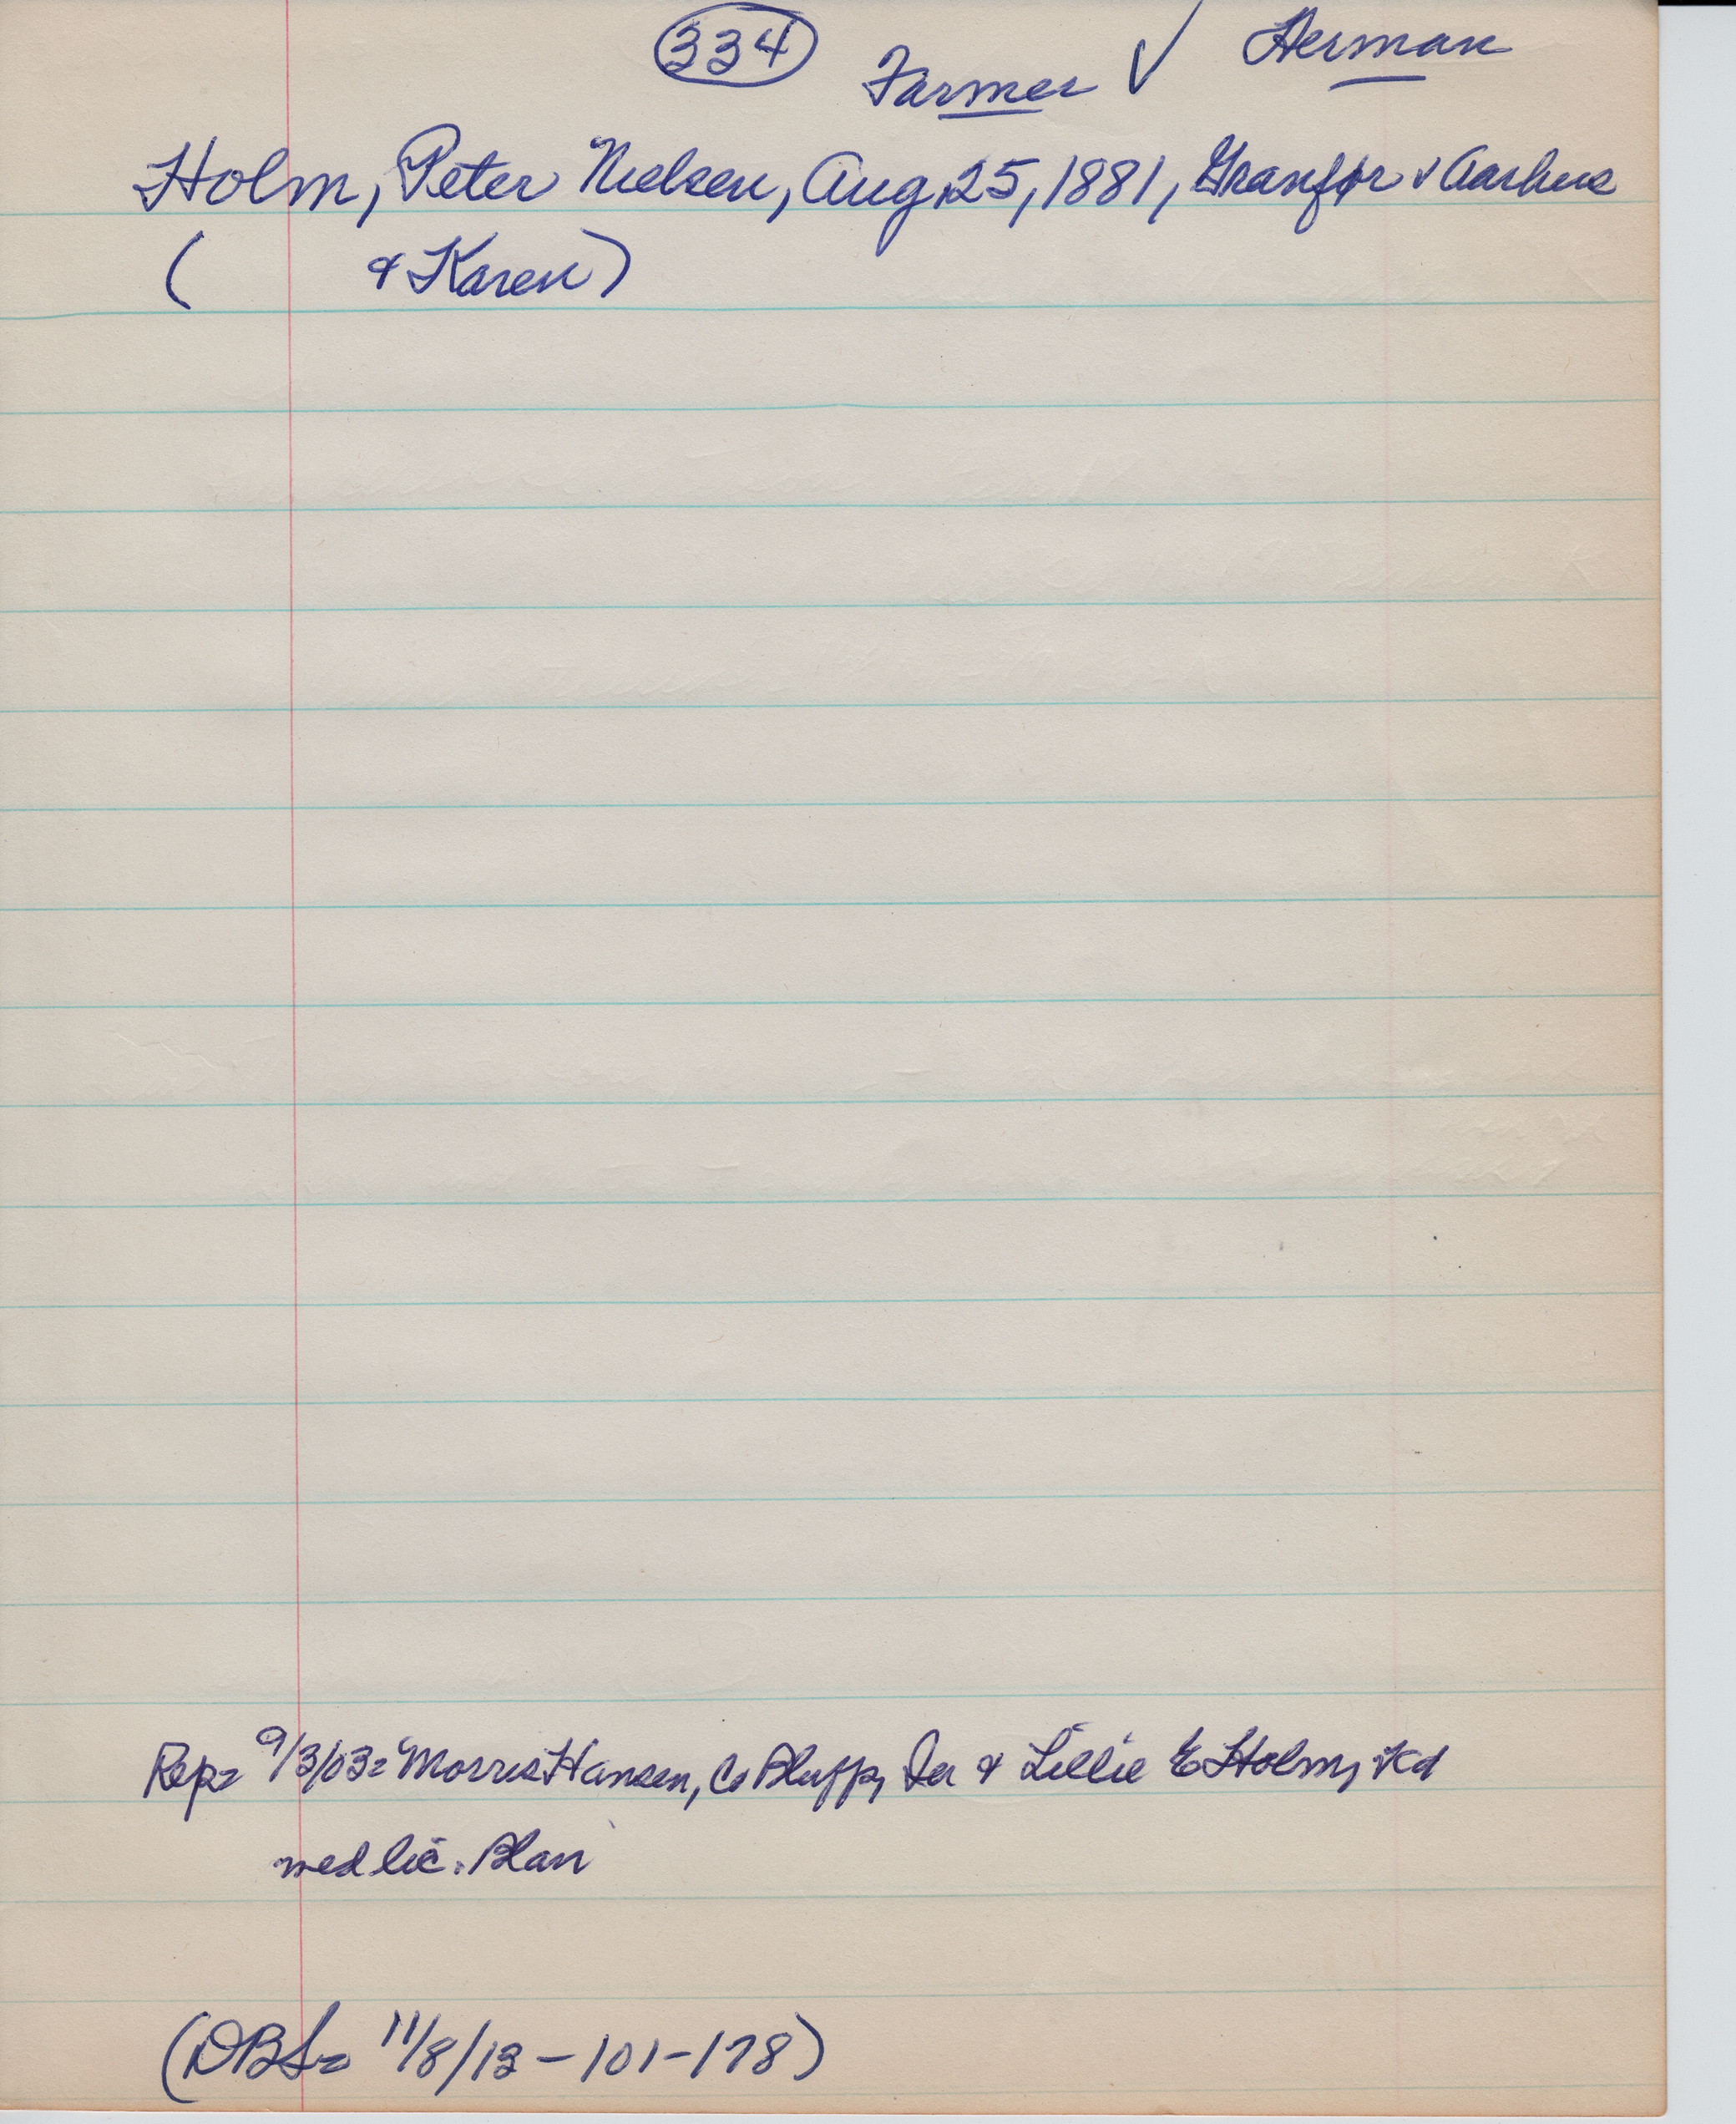 334
Farmer ✓ Herman
Holm, Peter Nielsen, Aug. 25, 1881, v Aarhus
( & Karen)
Rep= 9/3/03= Morris Hansen, Co Bluffs, Ia & Lillie E Holm, Kd
wed lic. Blair
(DBS= 11/8/13 - 101-178)